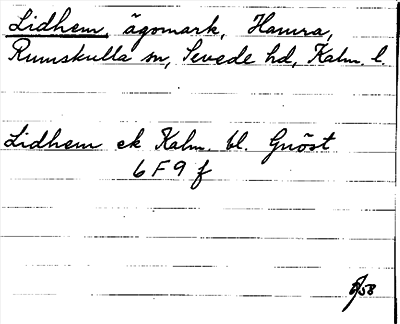 Lidhem, ägomark, Hamra,
Rumskulla sn, Sevede hd, Kalm. l.
Lidhem ek Kalm. bl. Gnöst
6 F 9 f
/58